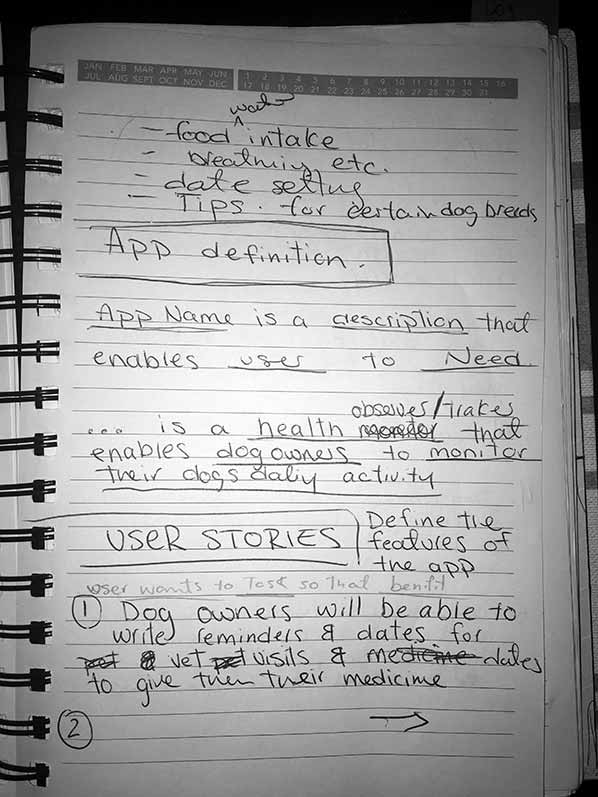 JAN FEB MAR APR MAY JUN
JUL AUG SEPT OCT NOV DEC
1 2 3 4 5 6 7 8 9 10 11 12 13 14 15 16
17 18 19 20 21 22 23 24 25 26 27 28 29 30 31
water
- food intake
- breathing etc.
- date setting
- Tips. for certain dog breeds
App definition.
App Name is a description that
enables user to Need
observes/trakes
... is a health monitor that
enables dog owners to monitor
their dogs daliy activity
USER STORIES
Define the
features of
the app
user wants to Task so that benifit
① Dog owners will be able to
write reminders & dates for
vet visits & medicine dates
to give them their medicime
②
→